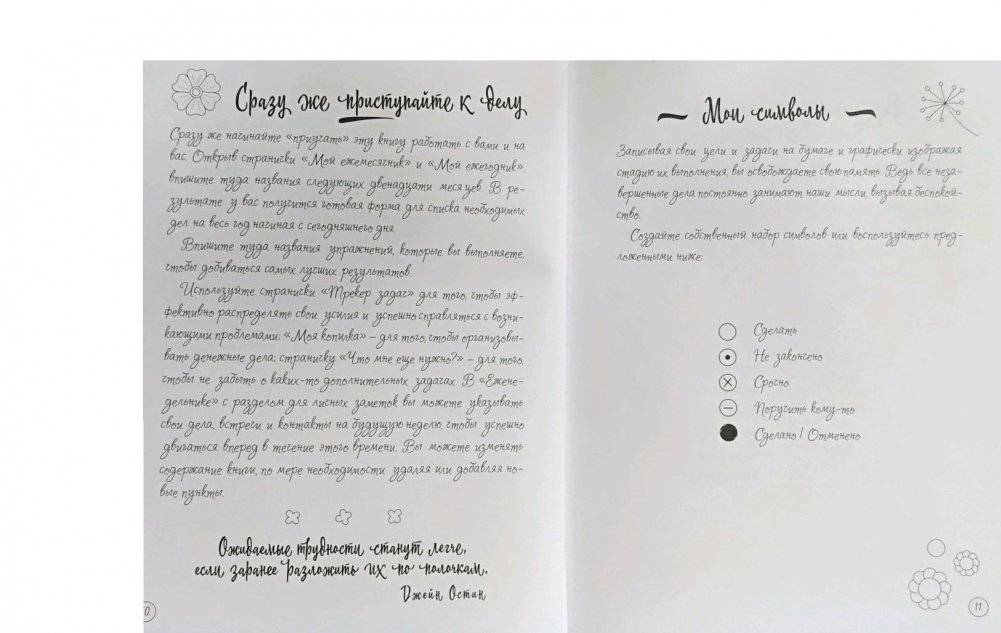 Сразу же приступайте к делу
Сразу же начинайте «приучать» эту книгу работать с вами и на
вас. Открыв странички «Мой ежемесячник» и «Мой ежегодник»,
впишите туда названия следующих двенадцати месяцев. В ре-
зультате у вас получится готовая форма для списка необходимых
дел на весь год начиная с сегодняшнего дня.
Впишите туда названия упражнений, которые вы выполняете,
чтобы добиваться самых лучших результатов.
Используйте странички «Трекер задач» для того, чтобы эф-
фективно распределять свои усилия и успешно справляться с возни-
кающими проблемами: «Моя копилка» – для того, чтобы организовы-
вать денежные дела; страничку «Что мне еще нужно?» – для того,
чтобы не забыть о каких-то дополнительных задачах. В «Ежене-
дельнике» с разделом для личных заметок вы можете указывать
свои дела, встречи и контакты на будущую неделю, чтобы успешно
двигаться вперед в течение этого времени. Вы можете изменять
содержание книги, по мере необходимости удаляя или добавляя но-
вые пункты.
Ожидаемые трудности станут легче,
если заранее разложить их по полочкам.
Джейн Остин
Мои символы
Записывая свои цели и задачи на бумаге и графически изображая
стадию их выполнения, вы освобождаете свою память. Ведь все неза-
вершенные дела постоянно занимают наши мысли, вызывая беспокой-
ство.
Создайте собственный набор символов или воспользуйтесь пред-
ложенными ниже:
Сделать
Не закончено
Срочно
Поручить кому-то
Сделано / Отменено
11